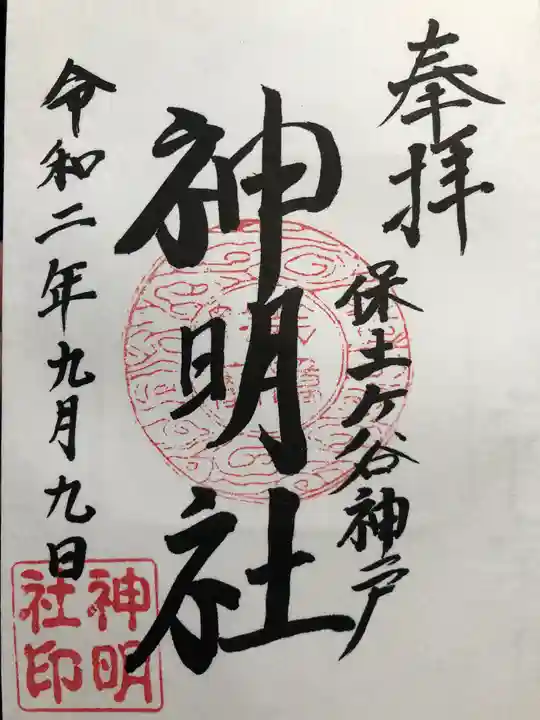 奉拝
保土ヶ谷神戸
神明社
令和二年九月九日
神明
社印